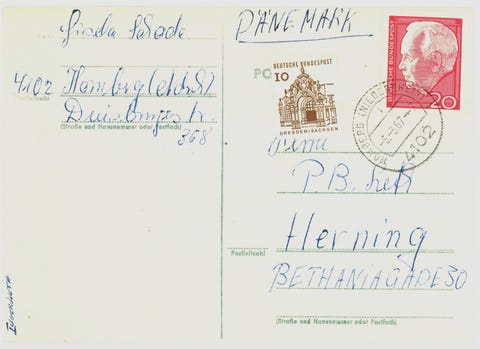 Gisela Schade
4102 Homberg
Postleitzahl
Duisburgerstr.
(Straße und Hausnummer oder Postfach)
368
DÄNEMARK
PC
10
DEUTSCHE BUNDESPOST
DRESDEN/SACHSEN
DEUTSCHE BUNDESPOST
20
HOMBERG (NIEDERRHEIN)
4102
P.B.
Herning
Postleitzahl
BETHANIAGADE 30
(Straße und Hausnummer oder Postfach)